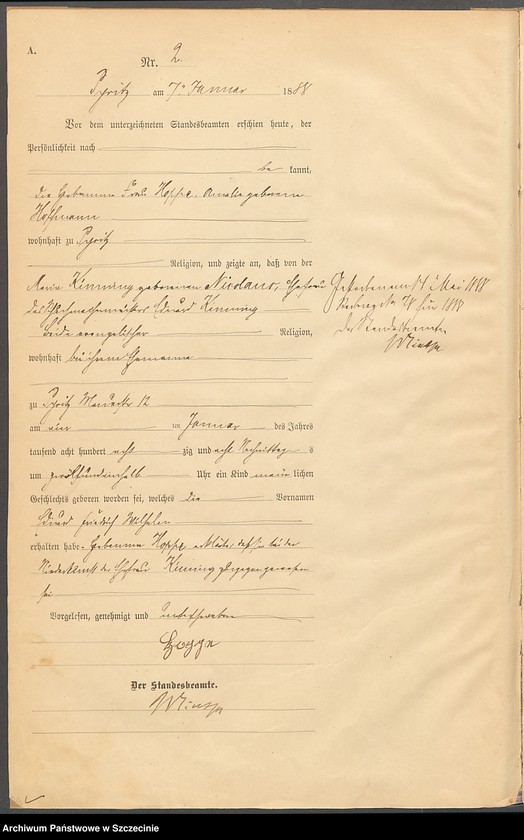 A.
Nr. 2
Pyritz am 7ten Januar 1888
Vor dem unterzeichneten Standesbeamten erschien heute, der
Persönlichkeit nach
be kannt,
die Hebamme Frau Hoppe, Amalie geborene
Hoffmann
wohnhaft zu Pyritz
Religion, und zeigte an, daß von der
Maria Kinning geborenen Ehefrau
des Eduard Kinning
beide evangelischer Religion,
wohnhaft bei ihrem Ehemanne
zu Pyritz 12
am ein im Januar des Jahres
tausend acht hundert acht zig und acht Nachmittags
um zwölfundeinhalb Uhr ein Kind männ lichen
Geschlechts geboren worden sei, welches die Vornamen
Eduard Friedrich Wilhelm
erhalten habe. Hebamme Hoppe erklärte, daß sie bei der
Niederkunft der Ehefrau Kinning zugegen gewesen
sei
Vorgelesen, genehmigt und unterschrieben
Hoppe
Der Standesbeamte.
Gestorben am Mai 1888
1888
Der Standesbeamte
Archiwum Państwowe w Szczecinie